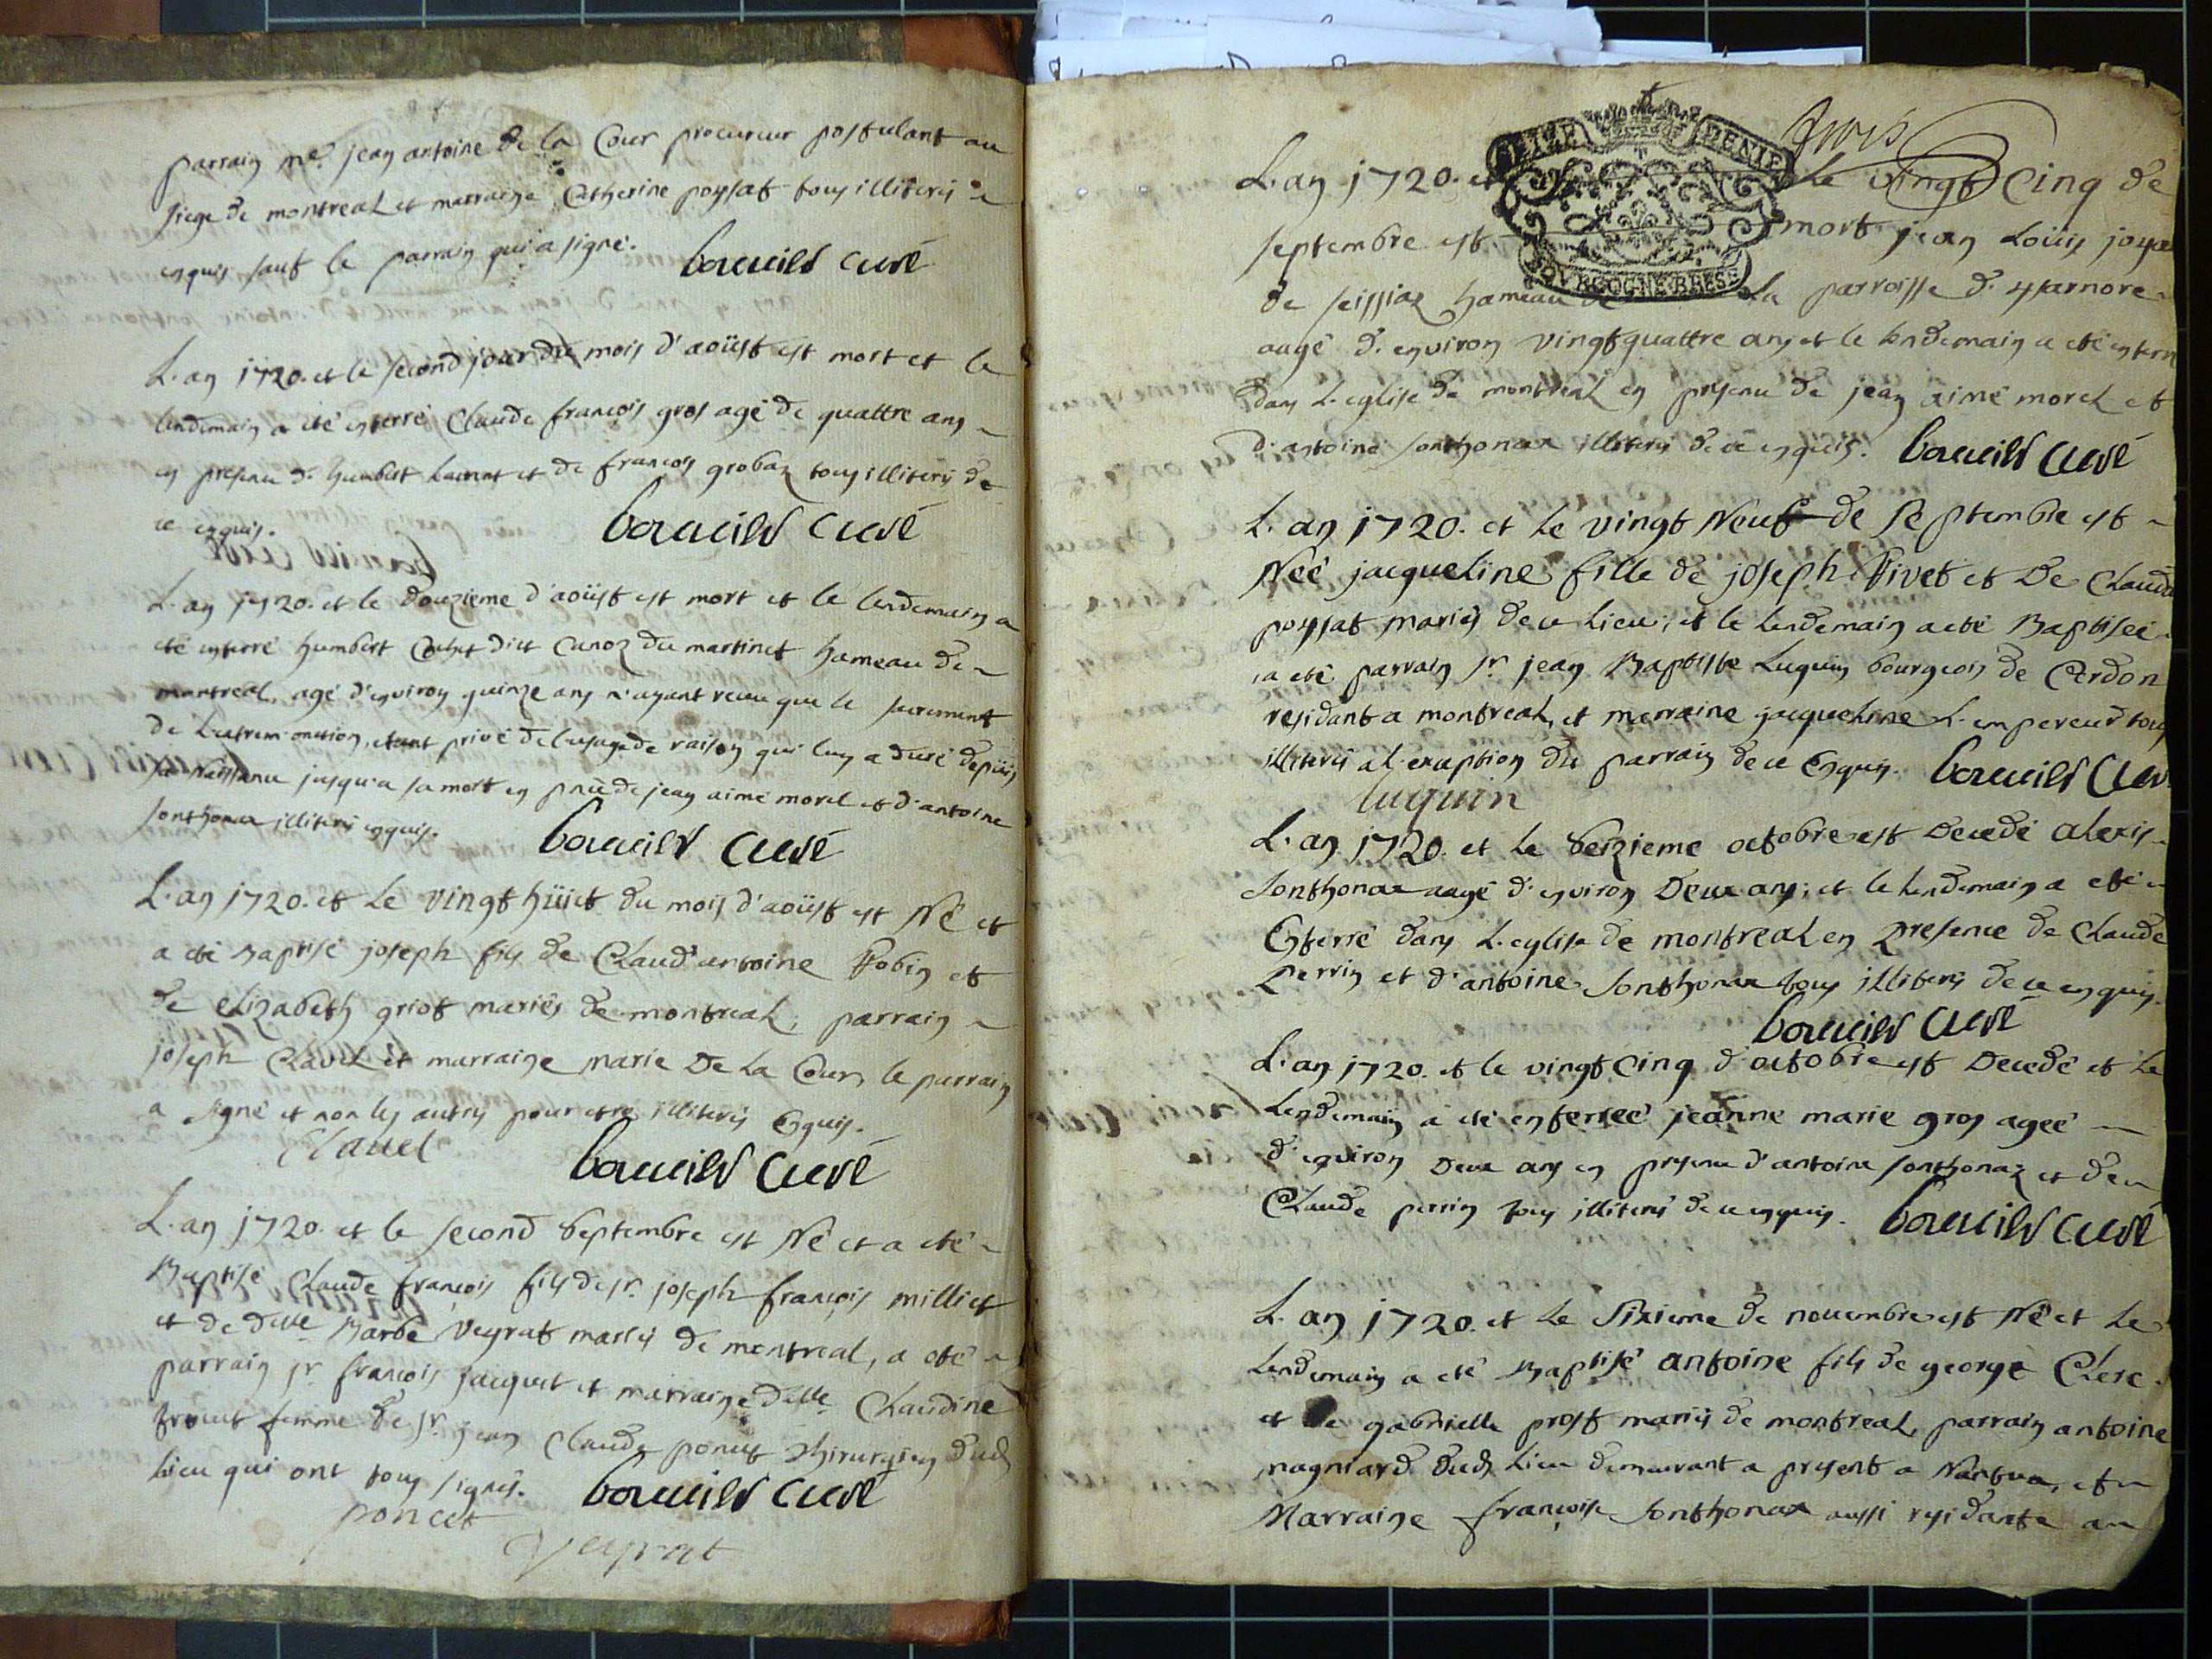 parrain me. jean antoine de la Cour procureur postulant au
siege de montreal et marraine Catherine poysat tous illiterés
enquis sauf le parrain qui a signé. bouveild Curé
L'an 1720. et le second jour du mois d'aoüst est mort et le
lendemain a eté enterré Claude françois gros agé de quattre ans
en presence d'humbert Laurent et de françois grobaz tous illiterés de
ce enquis. bouveild Curé
L'an 1720. et le douzieme d'aoüst est mort et le lendemain a
eté enterré humbert dict Canoz du martinet hameau de
montreal, agé d'environ quinze ans n'ayant receu que le sacrement
de L'extrem'onction, etant privé de l'usage de raison qui luy a duré depuis
sa naissance jusqu'a sa mort en pnce de jean aimé morel et d'antoine
sonthonax illiterés enquis. bouveild Curé
L'an 1720. et le vingt hüict du mois d'aoüst est Né et
a eté Baptisé joseph fils de Claud'antoine Robin et
de elizabeth griot mariés de montreal, parrain
joseph Clavel et marraine marie De La Cour, le parrain
a signé et non les autres pour etre illiterés Enquis.
Clavel bouveild Curé
L'an 1720. et le second Septembre est Né et a eté
Baptisé Claude françois fils de sr. joseph françois milliet
et de delle Barbe Veyrat mariés de montreal, a eté
parrain sr françois jacquet et marraine delle Claudine
femme de sr. jean Claude poncet Chirurgien dud
lieu qui ont tous signés. bouveild Curé
poncet
Veyrat
trois
SEIZE DENIE
BOVRGOGNE BRESSE
L'an 1720. et Le vingt Cinq de
septembre est mort jean Loüis
de seissiaz hameau de La parroisse d'ysarnore
aagé d'environ vingt quattre ans et le lendemain a eté
dans L'eglise de montreal en presence de jean aimé morel et
d'antoine sonthonax illiterés de ce enquis. bouveild Curé
L'an 1720. et Le vingt Neuf de Septembre est
Néé jacqueline fille de joseph Rivet et De Clauda
poyssat mariés de ce Lieu, et le Lendemain a eté Baptiséé
a eté parrain sr. jean Baptiste Luquin bourgeois de Cerdon
residant a montreal, et marraine jacqueline L'empereur tous
illiterés a L'exception du parrain de ce Enquis. bouveild Curé
luquin
L'an 1720. et Le Seizieme octobre est Decedé alexis
Sonthonax aagé d'environ Deux ans, et le Lendemain a eté
Enterré dans L'eglise de montreal en presence de Claude
perrin et d'antoine Sonthonax tous illiterés de ce enquis.
bouveild Curé
L'an 1720. et le vingt Cinq d'octobre est Decedé et Le
Lendemain a eté enterreé jeanne marie gros ageé
d'environ Deux ans en presence d'antoine sonthonaz et de
Claude perrin tous illiterés de ce enquis. bouveild Curé
L'an 1720. et Le Sixieme de novembre est Né et Le
Lendemain a eté Baptisé antoine fils de george Clerc
et de gabrielle prost mariés de montreal, parrain antoine
magniard dud Lieu demeurant a present a Nantua, et
Marraine françoise Sonthonax aussi residante au